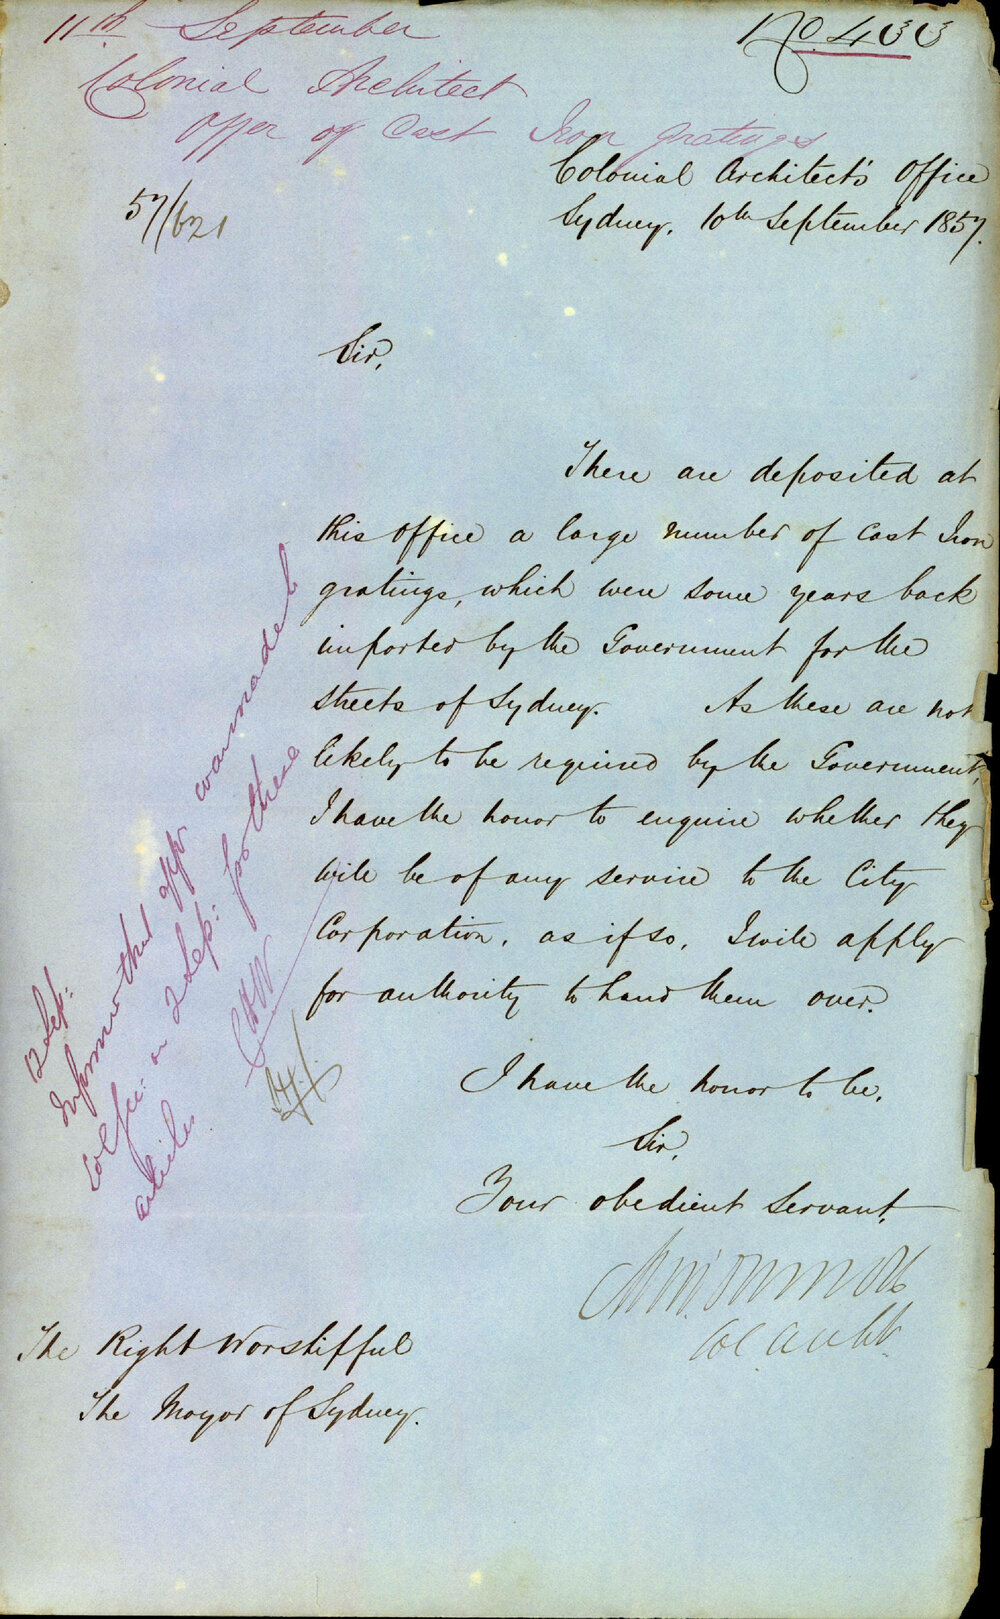 11th September
No 433
Colonial Architect
Offer of Cast Iron gratings
Colonial Architect's Office
Sydney, 10th September 1857.
57/621
Sir,
There are deposited at
this office a large number of cast Iron
gratings, which were some years back
imported by the Government for the
streets of Sydney. As these are not
likely to be required by the Government,
I have the honor to enquire whether they
will be of any service to the City
Corporation, as if so, I will apply
for authority to hand them over.
I have the honor to be,
Sir,
Your obedient Servant,
Col Archt
12 Sep:
Inform that appn was made to
Col Sec: on 2 Sep: for these
articles
CHW
The Right Worshipful
The Mayor of Sydney.